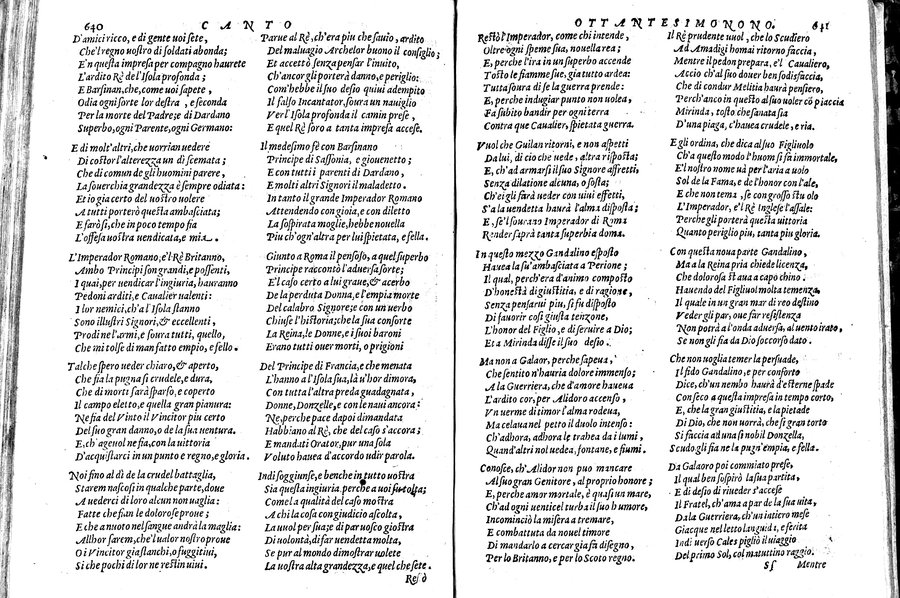 640 CANTO
D'amici ricco, e di gente uoi sete,
Che'l regno uostro di soldati abonda;
E'n questa impresa per compagno haurete
L'ardito Rè de l'Isola profonda;
E Barsinan, che, come uoi sapete,
Odia ogni sorte lor destra, e seconda
Per la morte del Padre; e di Dardano
Superbo, ogni Parente, ogni Germano:
E di molt'altri, che uorrian uedere
Di costor l'alterezza un dì scemata;
Che di comun de gli huomini parere,
La souerchia grandezza è sempre odiata:
Et io già certo del uostro uolere
A tutti porterò questa ambasciata;
E farò sì, che in poco tempo fia
L'offesa uostra uendicata, e mia.
L'Imperador Romano, e'l Rè Britanno,
Ambo Principi son grandi, e possenti,
I quai, per uendicar l'ingiuria, hauranno
Pedoni arditi, e Caualier ualenti:
I lor nemici, ch'a l'Isola stanno
Sono illustri Signori, & eccellenti,
Prodi ne l'armi, e soura tutti, quello,
Che mi tolse di man fatto empio, e fello.
Talche spero ueder chiaro, & aperto,
Che fia la pugna sì crudele, e dura,
Che di morti sarà sparso, e coperto
Il campo eletto, e quella gran pianura:
Ne fia del Vinto il Vincitor piu certo
Del suo gran danno, o de la sua uentura.
E, ch'ageuol ne fia, con la uittoria
D'acquistarci in un punto e regno, e gloria.
Noi fino al dì de la crudel battaglia,
Starem nascosi in qualche parte, doue
A uederci di loro alcun non uaglia:
Fatte che fian le dolorose proue;
E che a nuoto nel sangue andrà la maglia:
Allhor sarem, che'l ualor nostro proue
O i Vincitor già stanchi, o fuggitiui,
Sì che pochi di lor ne restin uiui.
Parue al Rè, ch'era piu che sauio, ardito
Del maluagio Archelor buono il consiglio;
Et accettò senza pensar l'inuito,
Ch'ancor gli porterà danno, e periglio:
Com'hebbe il suo desio quiui adempito
Il falso Incantator, soura un nauiglio
Ver l'Isola profonda il camin prese,
E quel Rè soro a tanta impresa accese.
Il medesimo fè con Barsinano
Principe di Sassonia, e giouenetto;
E con tutti i parenti di Dardano,
E molti altri Signori il maladetto.
In tanto il grande Imperador Romano
Attendendo con gioia, e con diletto
La sospirata moglie, hebbe nouella
Piu ch'ogn'altra per lui spietata, e fella.
Giunto a Roma il pensoso, a quel superbo
Principe raccontò l'aduersa sorte;
E'l caso certo a lui graue, & acerbo
De la perduta Donna, e l'empia morte
Del calabro Signore; e con un uerbo
Chiuse l'historia; che la sua consorte
La Reina, le Donne, e i suoi baroni
Erano tutti ouer morti, o prigioni
Del Principe di Francia, e che menata
L'hanno a l'Isola sua, là u'hor dimora,
Con tutta l'altra preda guadagnata,
Donne, Donzelle, e con le naui ancora:
Ne, perche pace dapoi dimandata
Habbiano al Rè, che del caso s'accora;
E mandati Orator, pur una sola
Voluto hauea d'accordo udir parola.
Indi soggiunse, e benche in tutto uostra
Sia questa ingiuria, perche a uoi fu tolta;
Come la qualità del caso mostra
A chi la cosa con giudicio ascolta,
La uuol per sua; e di par uosco giostra
Di uolontà, di far uendetta molta,
Se pur al mondo dimostrar uolete
La uostra alta grandezza, e quel che sete.
Restò
OTTANTESIMONONO. 641
Restò l'Imperador, come chi intende,
Oltre ogni speme sua, nouella rea;
E, perche l'ira in un superbo accende
Tosto le fiamme sue, già tutto ardea:
Tutta soura di se la guerra prende:
E, perche indugiar punto non uolea,
Fa subito bandir per ogni terra
Contra que Caualier, spietata guerra.
Vuol che Guilan ritorni, e non aspetti
Da lui, di ciò che uede, altra risposta;
E, ch'ad armarsi il suo Signore affretti,
Senza dilatione alcuna, o sosta;
Ch'ei gli farà ueder con uiui effetti,
S'a la uendetta haurà l'alma disposta;
E, se'l sourano Imperador di Roma
Render saprà tanta superbia doma.
In questo mezzo Gandalino esposto
Hauea la su' ambasciata a Perione;
Il qual, perch'era d'animo composto
D'honestà di giustitia, e di ragione,
Senza pensarui piu, si fu disposto
Di fauorir così giusta tenzone,
L'honor del Figlio, e di seruire a Dio;
Et a Mirinda disse il suo desio.
Ma non a Galaor, perche sapeua,
Che sentito n'hauria dolore immenso;
A la Guerriera, che d'amore haueua
L'ardito cor, per Alidoro accenso,
Vn uerme di timor l'alma rodeua,
Ma celaua nel petto il duolo intenso:
Ch'adhora, adhora le trahea da i lumi,
Quand'altri nol uedea, fontane, e fiumi.
Conosce, ch'Alidor non può mancare
Al suo gran Genitore, al proprio honore;
E, perche amor mortale, è quasi un mare,
Ch'ad ogni uenticel turba il suo humore,
Incominciò la misera a tremare,
E combattuta da nouel timore
Di mandarlo a cercar già fà disegno,
Per lo Britanno, e per lo Scoto regno.
Il Rè prudente uuol, che lo Scudiero
Ad Amadigi homai ritorno faccia,
Mentre il pedon prepara, e'l Caualiero,
Accio ch'al suo douer ben sodisfaccia,
Che di condur Melitia haurà pensiero,
Perch'anco in questo al suo uoler cõ piaccia
Mirinda, tosto che sanata sia
D'una piaga, c'hauea crudele, e ria.
E gli ordina, che dica al suo Figliuolo
Ch'a questo modo l'huom si fà immortale,
E'l nostro nome uà per l'aria a uolo
Sol de la Fama, e de l'honor con l'ale,
E che non tema, se con grosso stuolo
L'Imperador, e'l Rè Inglese l'assale:
Perche gli porterà questa uittoria
Quanto periglio piu, tanta piu gloria.
Con questa noua parte Gandalino;
Ma a la Reina pria chiede licenza,
Che dolorosa staua a capo chino.
Hauendo del Figliuol molta temenza,
Il quale in un gran mar di reo destino
Veder gli par, oue far resistenza
Non potrà a l'onda aduersa, al uento irato,
Se non gli fia da Dio soccorso dato.
Che non uoglia temer la persuade,
Il fido Gandalino, e per conforto
Dice, ch'un nembo haurà d'esterne spade
Con seco a questa impresa in tempo corto,
E, che la gran giustitia, e la pietade
Di Dio, che non uorrà, che si gran torto
Si faccia ad una sì nobil Donzella,
Scudo gli fia ne la pugn' empia, e fella.
Da Galaoro poi commiato prese,
Il qual ben sospirò la sua partita,
E di desio di riueder s'accese
Il Fratel, ch'ama a par de la sua uita,
Da la Guerriera, ch'un intiero mese
Giacque nel letto languida, e ferita
Indi uerso Cales pigliò il uiaggio
Del primo Sol, col matuttino raggio.
Sſ Mentre